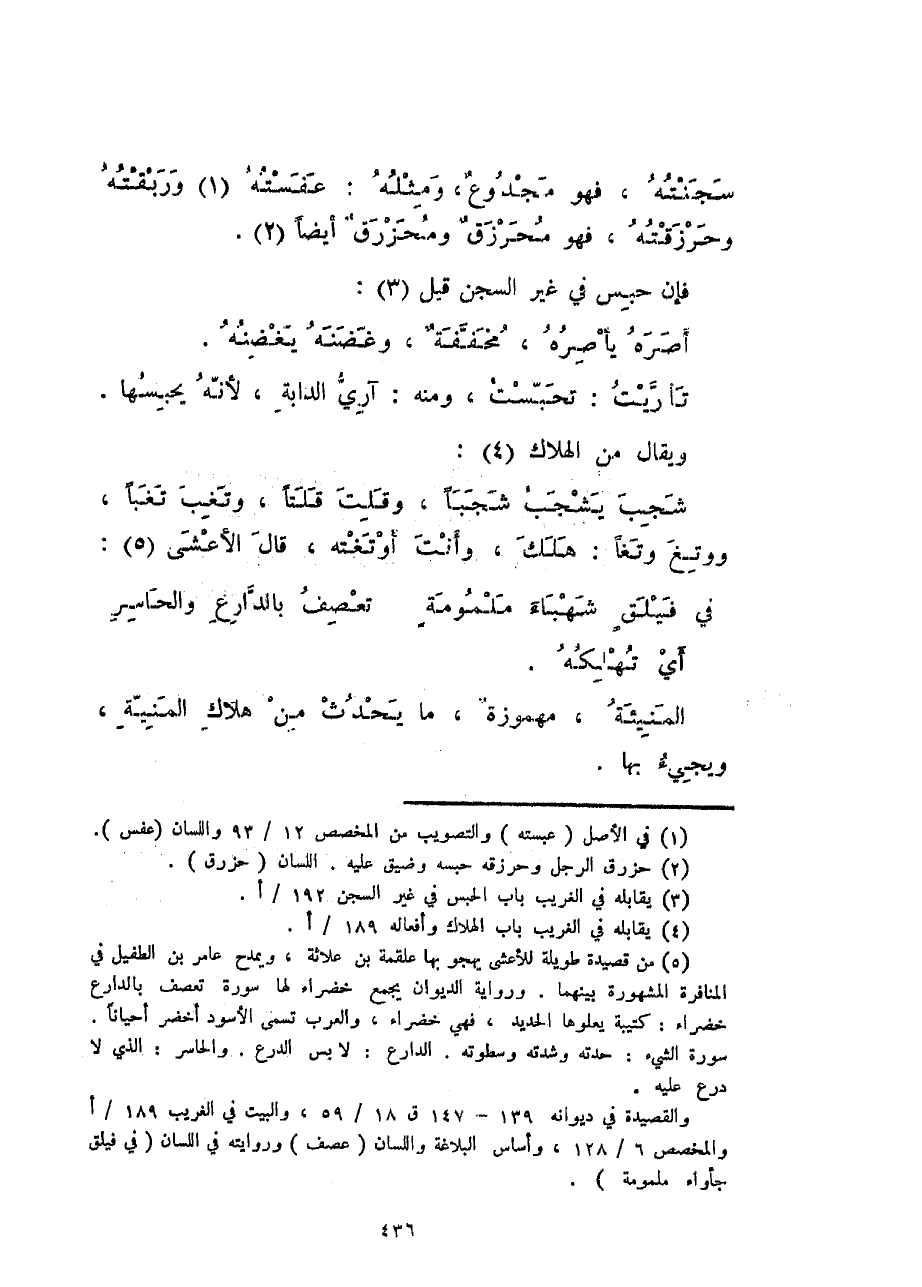 سَجَنْتُهُ ، فهو مَجْدُوعٌ، وَمِثْلُهُ : عَفَسْتُهُ (١) وَرَبَقْتُهُ
وحَرْزَقْتُهُ ، فهو مُحَرْزَقٌ ومُحَزْرَقٌ أيضاً (٢) .
فإن حبِس في غير السجن قيل (٣) :
أَصَرَهُ يأْصِرُهُ ، مُخَفَّفَةٌ ، وغَضَنَهُ يَغْضِنُهُ .
تَأَرَّيْتُ : تحَبّسْتْ ، ومنه : آرِيُّ الدابةِ ، لأنّهُ يحبِسُها .
ويقال من الهلاك (٤) :
شَجِبَ يَشْجَبُ شَجَبَاً ، وقَلِتَ قَلَتاً ، وتَغِبَ تَغَباً ،
ووتِغَ وتَغاً : هَلَكَ ، وأَنْتَ أوْتَغْته ، قالَ الأعْشَى (٥) :
في فَيْلَقٍ شَهْبَاءَ مَلْمُومَةٍ تعْصِفُ بالدَّارِعِ والحَاسِرِ
أَيْ تُهْلِكُهُ .
المَنِيئَةُ ، مهموزةٌ ، ما يَحْدُثْ مِنْ هلاكِ المَنِيّةِ ،
ويجيءُ بها .
(١) في الأصل ( عبسته ) والتصويب من المخصص ١٢ / ٩٣ واللسان (عفس ).
(٢) حزرق الرجل وحرزقه حبسه وضيق عليه . اللسان ( حزرق ) .
(٣) يقابله في الغريب باب الحبس في غير السجن ١٩٢ / أ .
(٤) يقابله في الغريب باب الهلاك وأفعاله ١٨٩ / أ .
(٥) من قصيدة طويلة للأعشى يهجو بها علقمة بن علاثة ، ويمدح عامر بن الطفيل في
المنافرة المشهورة بينهما . ورواية الديوان يجمع خضراء لها سورة تعصف بالدارع
خضراء : كتيبة يعلوها الحديد ، فهي خضراء ، والعرب تسمى الأسود أخضر أحياناً .
سورة الشيء : حدته وشدته وسطوته . الدارع : لابس الدرع . والحاسر : الذي لا
درع عليه .
والقصيدة في ديوانه ١٣٩ - ١٤٧ ق ١٨ / ٥٩ ، والبيت في الغريب ١٨٩ / أ
والمخصص ٦ / ١٢٨ ، وأساس البلاغة واللسان ( عصف ) وروايته في اللسان ( في فيلق
جأواء ملمومة ) .
٤٣٦